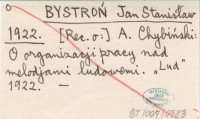 BYSTROŃ Jan Stanisław
1922. [Rec. o:] A. Chybiński:
O organizacji pracy nad
melodjami ludowemi. „Lud"
1922. —